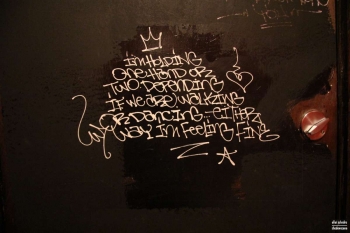 i'm Holding
ONE HAND OR
TWO DEPENDING
IF WE ARE WALTZING
OR DANCING.. EITHER
WAY I'M FEELING FINE